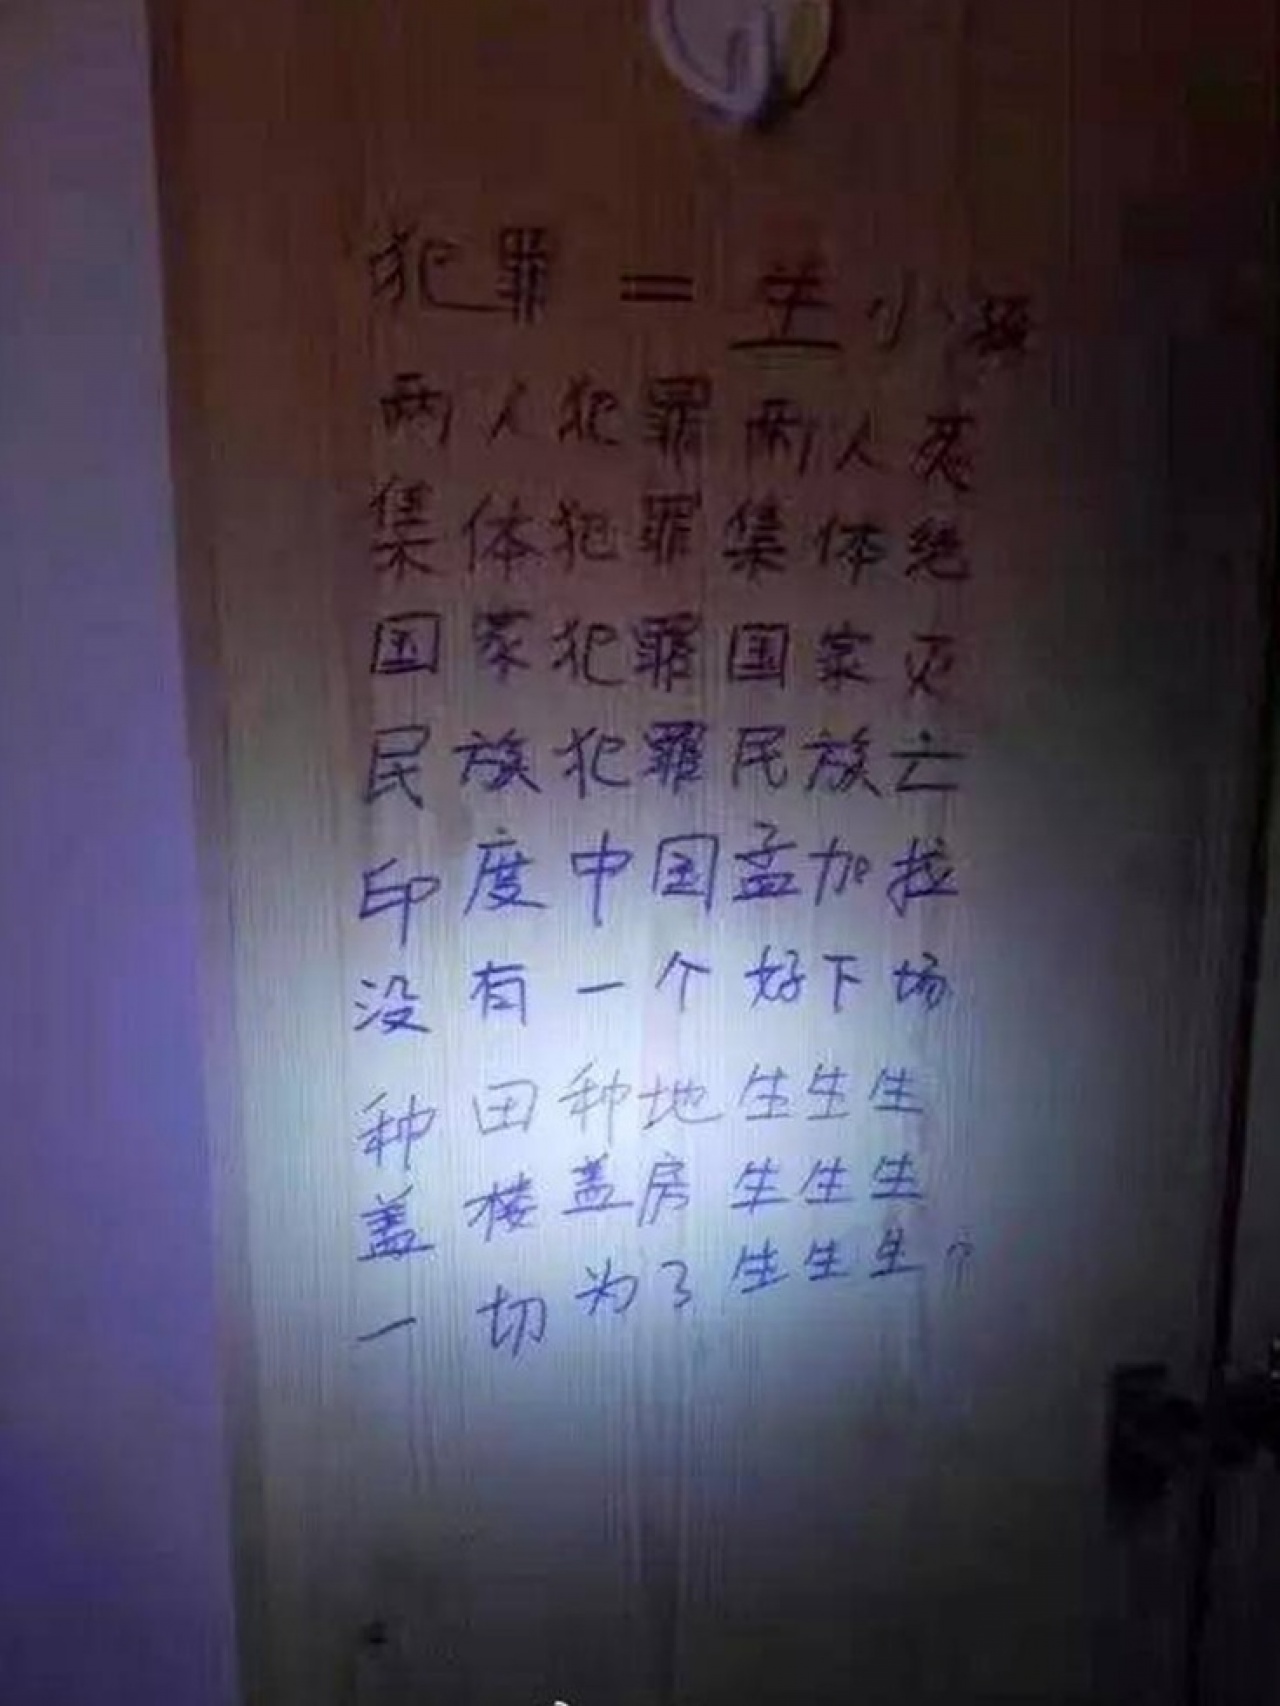 犯罪 = 生小孩
两人犯罪两人死
集体犯罪集体绝
国家犯罪国家灭
民族犯罪民族亡
印度中国孟加拉
没有一个好下场
种田种地生生生
盖楼盖房生生生
一切为了生生生